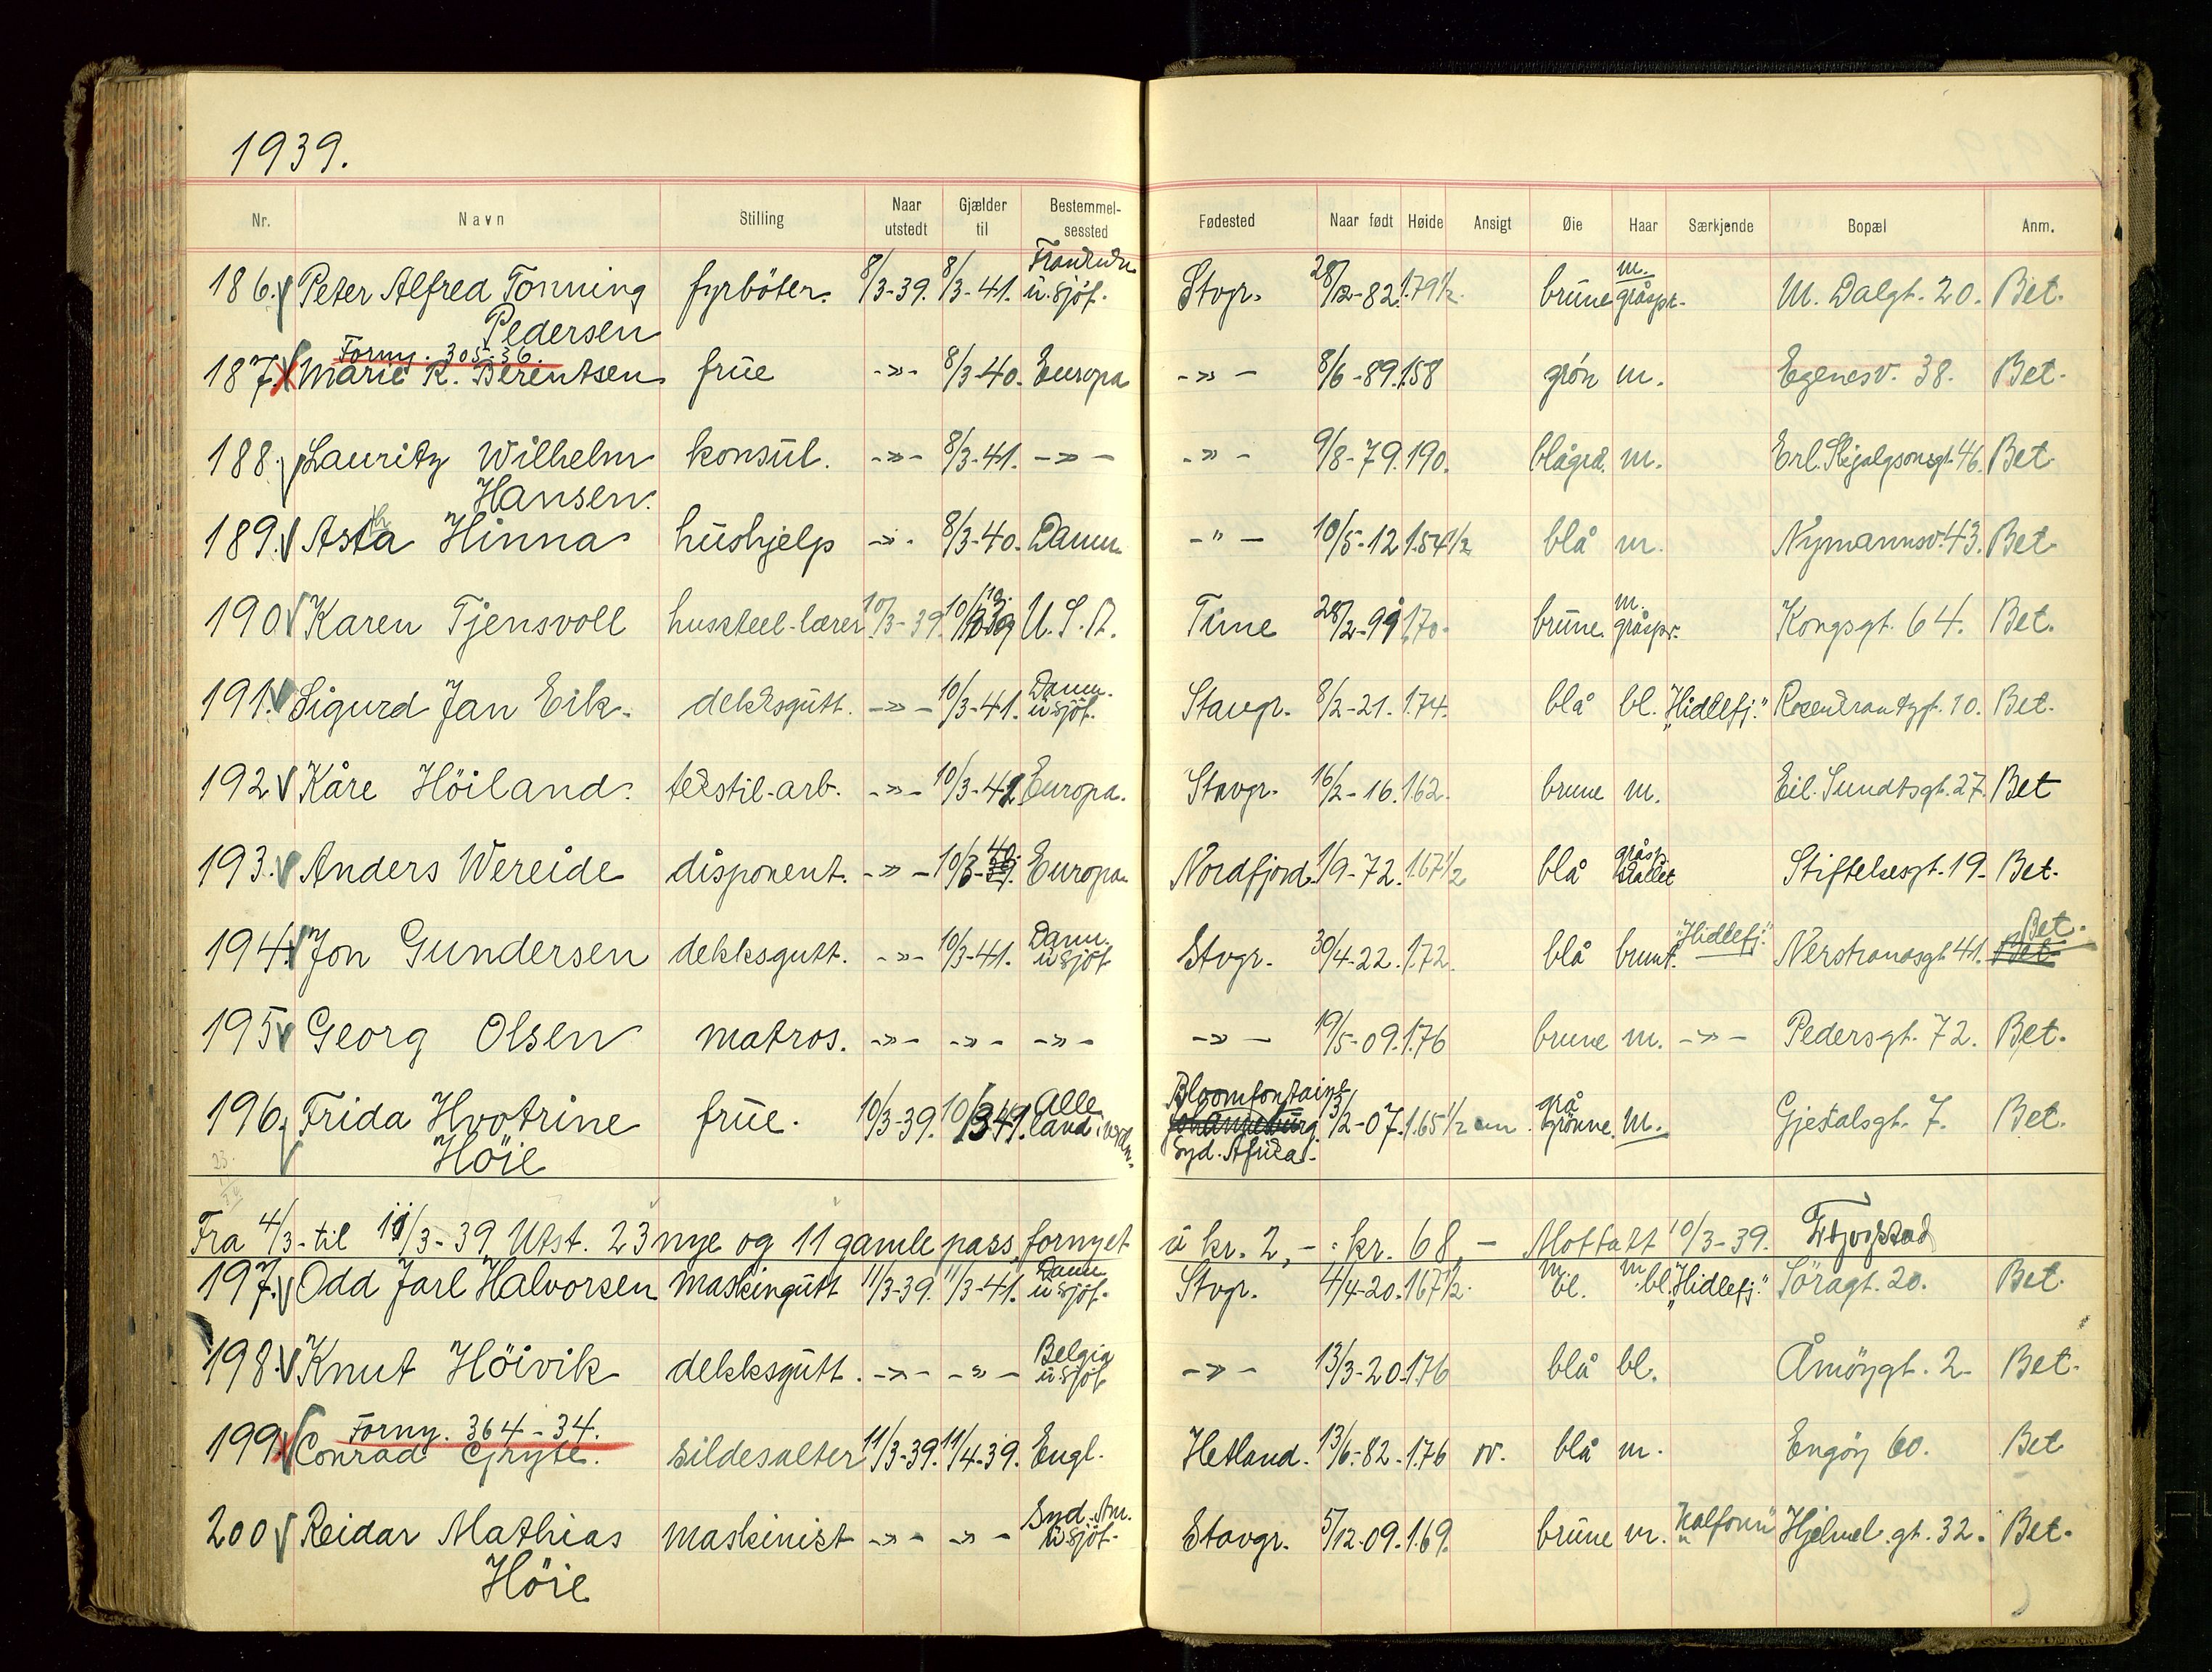 1939.
Nr. Navn Stilling Naar utstedt Gjælder til Bestemmel-sessted Fødested Naar født Høide Ansigt Øie Haar Særkjende Bopæl Anm.
186. Peter Alfred Tonning fyrböter. 8/3-39. 8/3-41. u.sjöf. Stvgr. 28/12-82. 1.79½. brune m. gråspr. M. Dalgt. 20. Bet.
Pedersen
Forny. 305-36.
187. Marie K. Berentsen frue -»- 8/3-40. Europa -»- 8/6-89. 1.58 grön m. Egenesv. 38. Bet.
188. Lauritz Wilhelm konsul. -»- 8/3-41. -»- -»- 9/8-79. 190. blågrå. m. Erl. Skjalgsonsgt. 46. Bet.
Hansen.
189. Asta Hinna hushjelp -»- 8/3-40. Danm. -"- 10/5-12 1.54½ blå m. Nymannsv. 43. Bet.
190 Karen Tjensvoll husstell-lærer 10/3-39. U.S.A. Time 28/2-99 1.70. brune. m. gråspr. Kongsgt. 64. Bet.
191. Sigurd Jan Eik. dekksgutt. -»- 10/3-41. Danm. u.sjöf. Stavgr. 8/2-21. 1.74. blå bl. "Hidlefj." Rosenkrantzgt. 10. Bet.
192 Kåre Höiland. tekstil-arb. -»- 10/3-42 Europa. Stavgr. 16/2-16. 1.62. brune m. Eil. Sundtsgt. 27. Bet
193. Anders Wereide disponent. -»- 10/3-40. Europa Nordfjord. 1/9-72. 1.67½ blå gråsp. skallet Stiftelsesgt. 19. Bet.
194. Jon Gundersen dekksgutt. -»- 10/3-41. Danm. u.sjöf. Stvgr. 30/4-22. 1.72. blå brunt. "Hidlefj." Nerstrandsgt. 41. Bet. Bet
195 Georg Olsen matros. -»- -»- -»- -»- 19/5-09. 1.76 brune m. -»- Pedersgt. 72. Bet.
196. Frida frue. 10/3-39. Alle land i verden. Bloomfontaine Syd. Africa. 3/2-07. 1.65½ cm. grå grönne. m. Gjesdalsgt. 7. Bet.
Höie
23.
Fra 4/3-til 11/3-39 Utst. 23 nye og 11 gamle pass fornyet á kr. 2,- : kr. 68,- Mottatt 10/3-39.
197. Odd Jarl Halvorsen maskingutt 11/3-39. 11/3-41. Danm. u.sjöf. Stvgr. 4/4-20. 1.67½. m bl. m bl. "Hidlefj." Söragt. 20. Bet.
198. Knut Höivik dekksgutt. -»- -»- Belgia u.sjöf. -»- 13/3-20. 1.76 blå bl. Åmöygt. 2. Bet.
Forny. 364-34.
199. Conrad Gryte. sildesalter 11/3-39. 11/4-39. Engl. Hetland. 13/6-82. 1.76 ov. blå m. Engöy 60. Bet
200 Reidar Mathias maskinist -»- -»- Syd.Am. u.sjöf. Stavgr. 5/12.09. 1.69. brune m. "Kalfonn" Hjelmel.gt. 32. Bet.
Höie